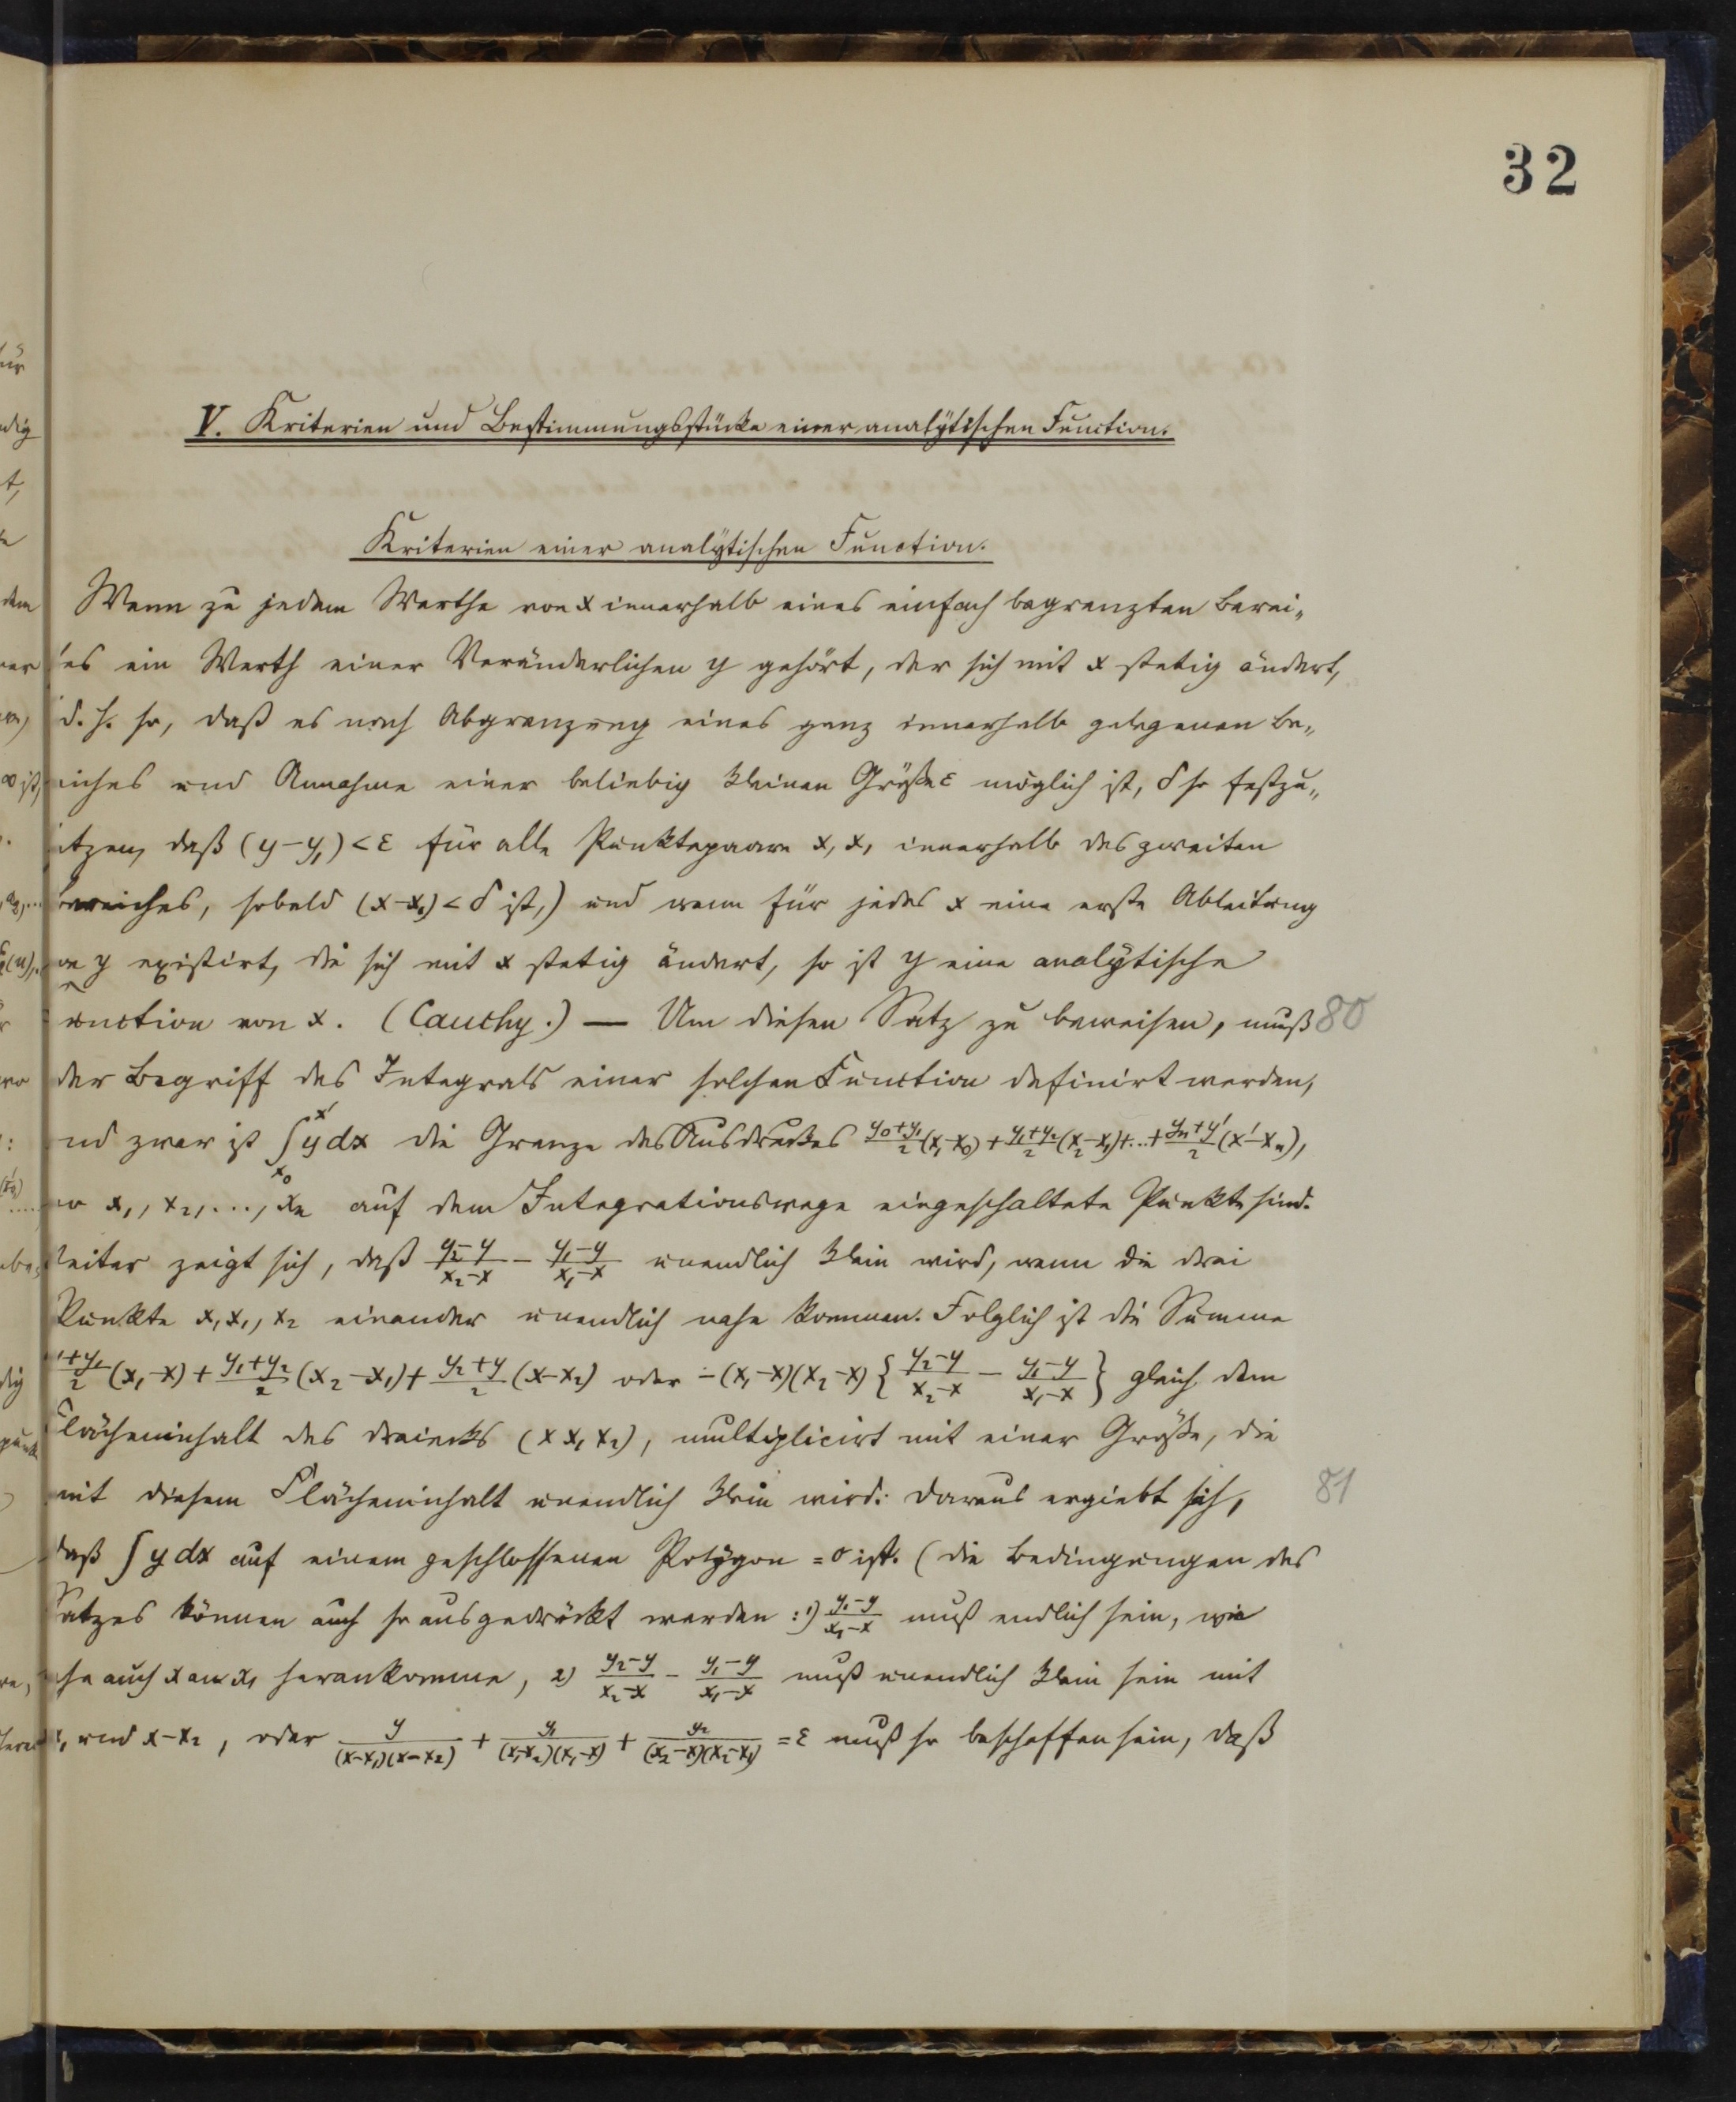 32
V. Kriterien und Bestimmungsstücke einer analytischen Function.
Kriterien einer analytischen Function.
Wenn zu jedem Werthe von x innerhalb eines einfach begrenzten Berei-
es ein Werth einer Veränderlichen y gehört, der sich mit x stetig ändert,
d. h. so, daß es nach Abgrenzung eines ganz innerhalb gelegenen Be-
iches und Annahme einer beliebig kleinen Größe ε möglich ist, δ so festzu-
etzen, daß (y-y₁) < ε für alle Punktepaare x, x₁ innerhalb des zweiten
ereiches, sobald (x-x₁) < δ ist,) und wenn für jedes x eine erste Ableitung
on y existirt, die sich mit x stetig ändert, so ist y eine analytische
Function von x. (Cauchy.) — Um diesen Satz zu beweisen, muß 80
der Begriff des Integrals einer solchen Function definirt werden,
nd zwar ist ∫_{x₀}^{x'} y dx die Grenze des Ausdruckes (y₀+y₁)/2 (x₁-x₀) + (y₁+y₂)/2 (x₂-x₁) + ... + (yₙ+y')/2 (x'-xₙ),
wo x₁, x₂, ..., xₙ auf dem Integrationswege eingeschaltete Punkte sind.
Weiter zeigt sich, daß (y₂-y)/(x₂-x) - (y₁-y)/(x₁-x) unendlich klein wird, wenn die drei
Punkte x, x₁, x₂ einander unendlich nahe kommen. Folglich ist die Summe
(y+y₁)/2 (x₁-x) + (y₁+y₂)/2 (x₂-x₁) + (y₂+y)/2 (x-x₂) oder -(x₁-x)(x₂-x) {(y₂-y)/(x₂-x) - (y₁-y)/(x₁-x)} gleich dem
Flächeninhalt des Dreiecks (x x₁ x₂), multiplicirt mit einer Größe, die
mit diesem Flächeninhalt unendlich klein wird. Daraus ergiebt sich, 81
daß ∫ y dx auf einem geschlossenen Polygon = 0 ist. (Die Bedingungen des
Satzes können auch so ausgedrückt werden: 1) (y₁-y)/(x₁-x) muß endlich sein, wie
he auch x an x₁ herankomme, 2) (y₂-y)/(x₂-x) - (y₁-y)/(x₁-x) muß unendlich klein sein mit
x₁ und x-x₂, oder y/((x-x₁)(x-x₂)) + y₁/((x₁-x₂)(x₁-x)) + y₂/((x₂-x)(x₂-x₁)) = ε muß so beschaffen sein, daß